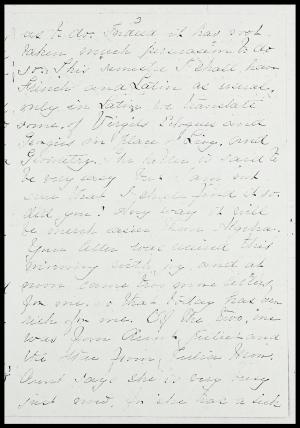 3
as to do. Indeed it has not
taken much persuasion to do
so. This semester I shall have
French and Latin as usual,
only in Latin we translate
some of Virgil's Eclogues and
in place of Livy, and
Geometry. The latter is said to
be very easy but I am not
sure that I shall find it so.
did you? Any way it will
be much easier than Algebra.
Your letter was received this
morning with joy and at
noon came two more letters
for me, so that to-day has been
rich for me. Of the two, one
was from Aunt Juliet and
the other from Julia
Aunt says she is very busy
just now, for she has a sick